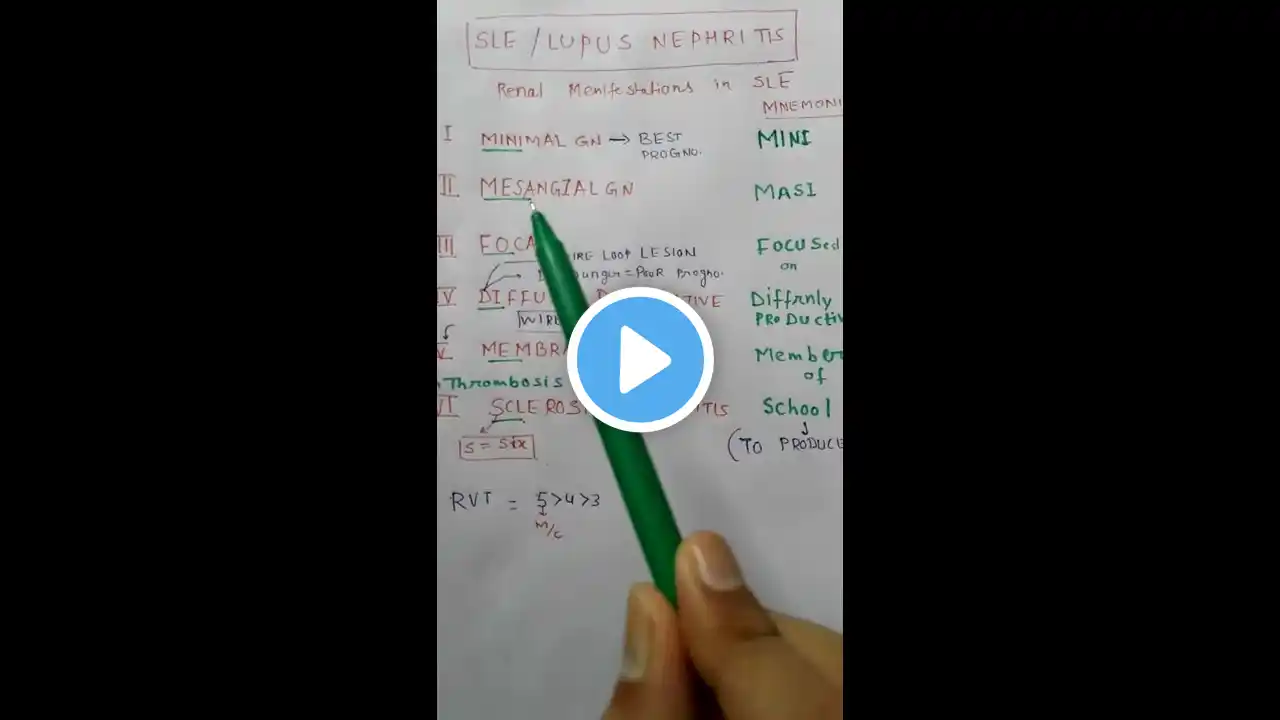 SLE / LUPUS NEPHRITIS
Renal Menifestations in SLE
MNEMONI
I MINIMAL GN → BEST PROGNO. MINI
II MESANGIAL GN MASI
III FOCA FOCUSed on
IRE LOOP LESION
= POOR Progno.
IV DIFFU TIVE Diffrnly PRODuctiv
WIRE
V MEMBRA Member of
Thrombosis
VI SCLEROSI ITIS School
S = Six
(TO PRODUCE
RVT = 5>4>3
M/C